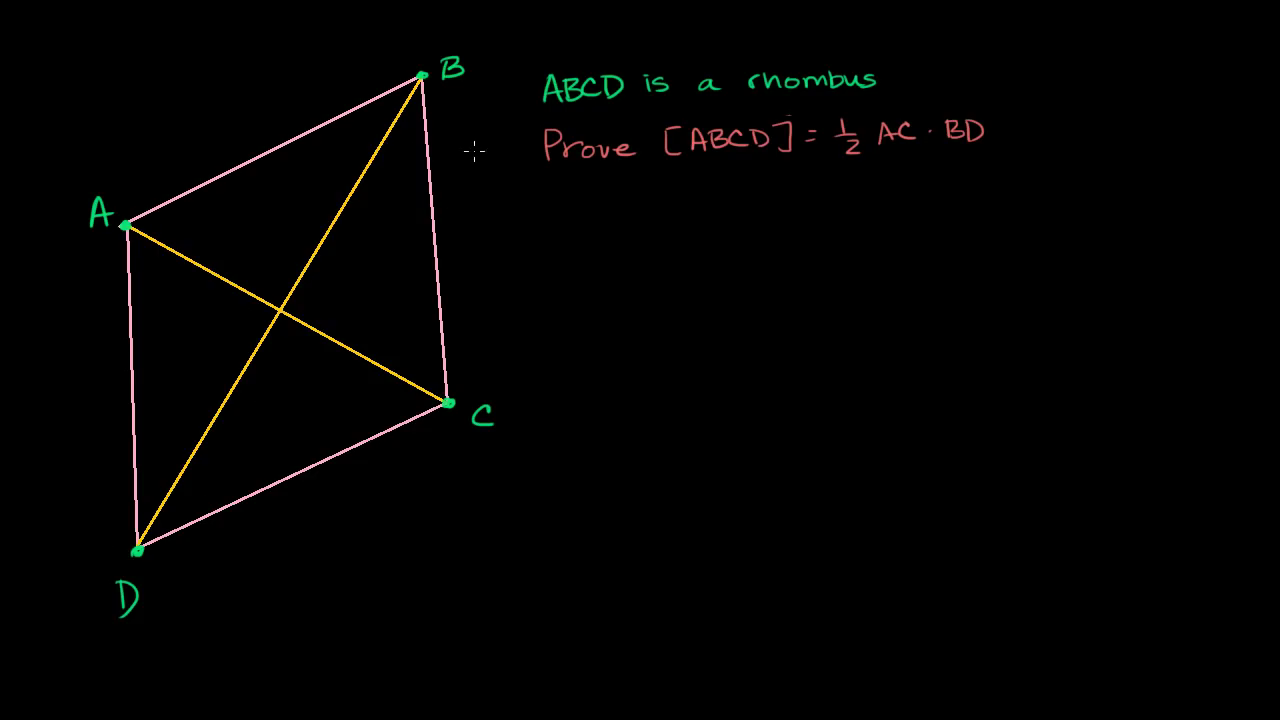 B
ABCD is a rhombus
Prove [ABCD] = ½ AC · BD
A
C
D